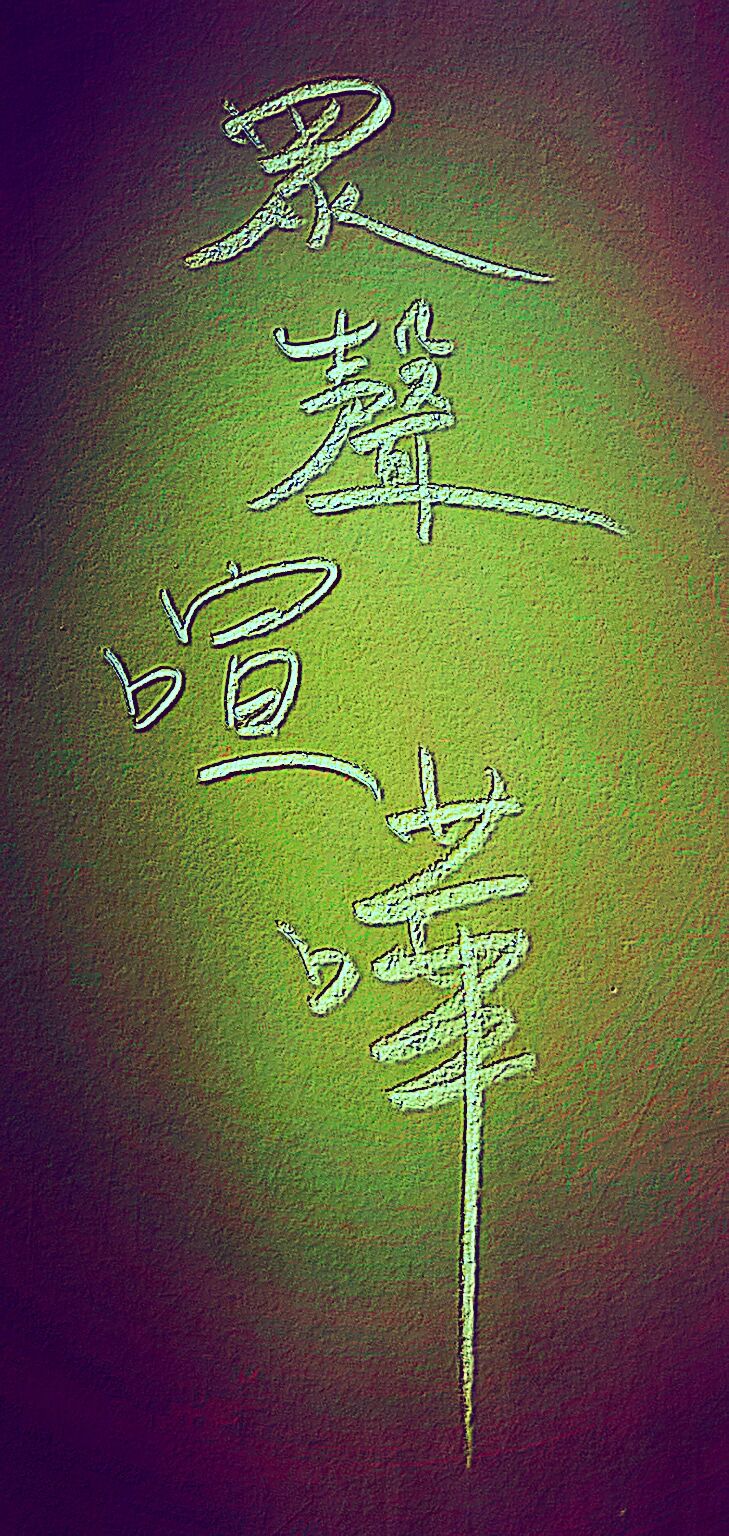 眾聲喧嘩